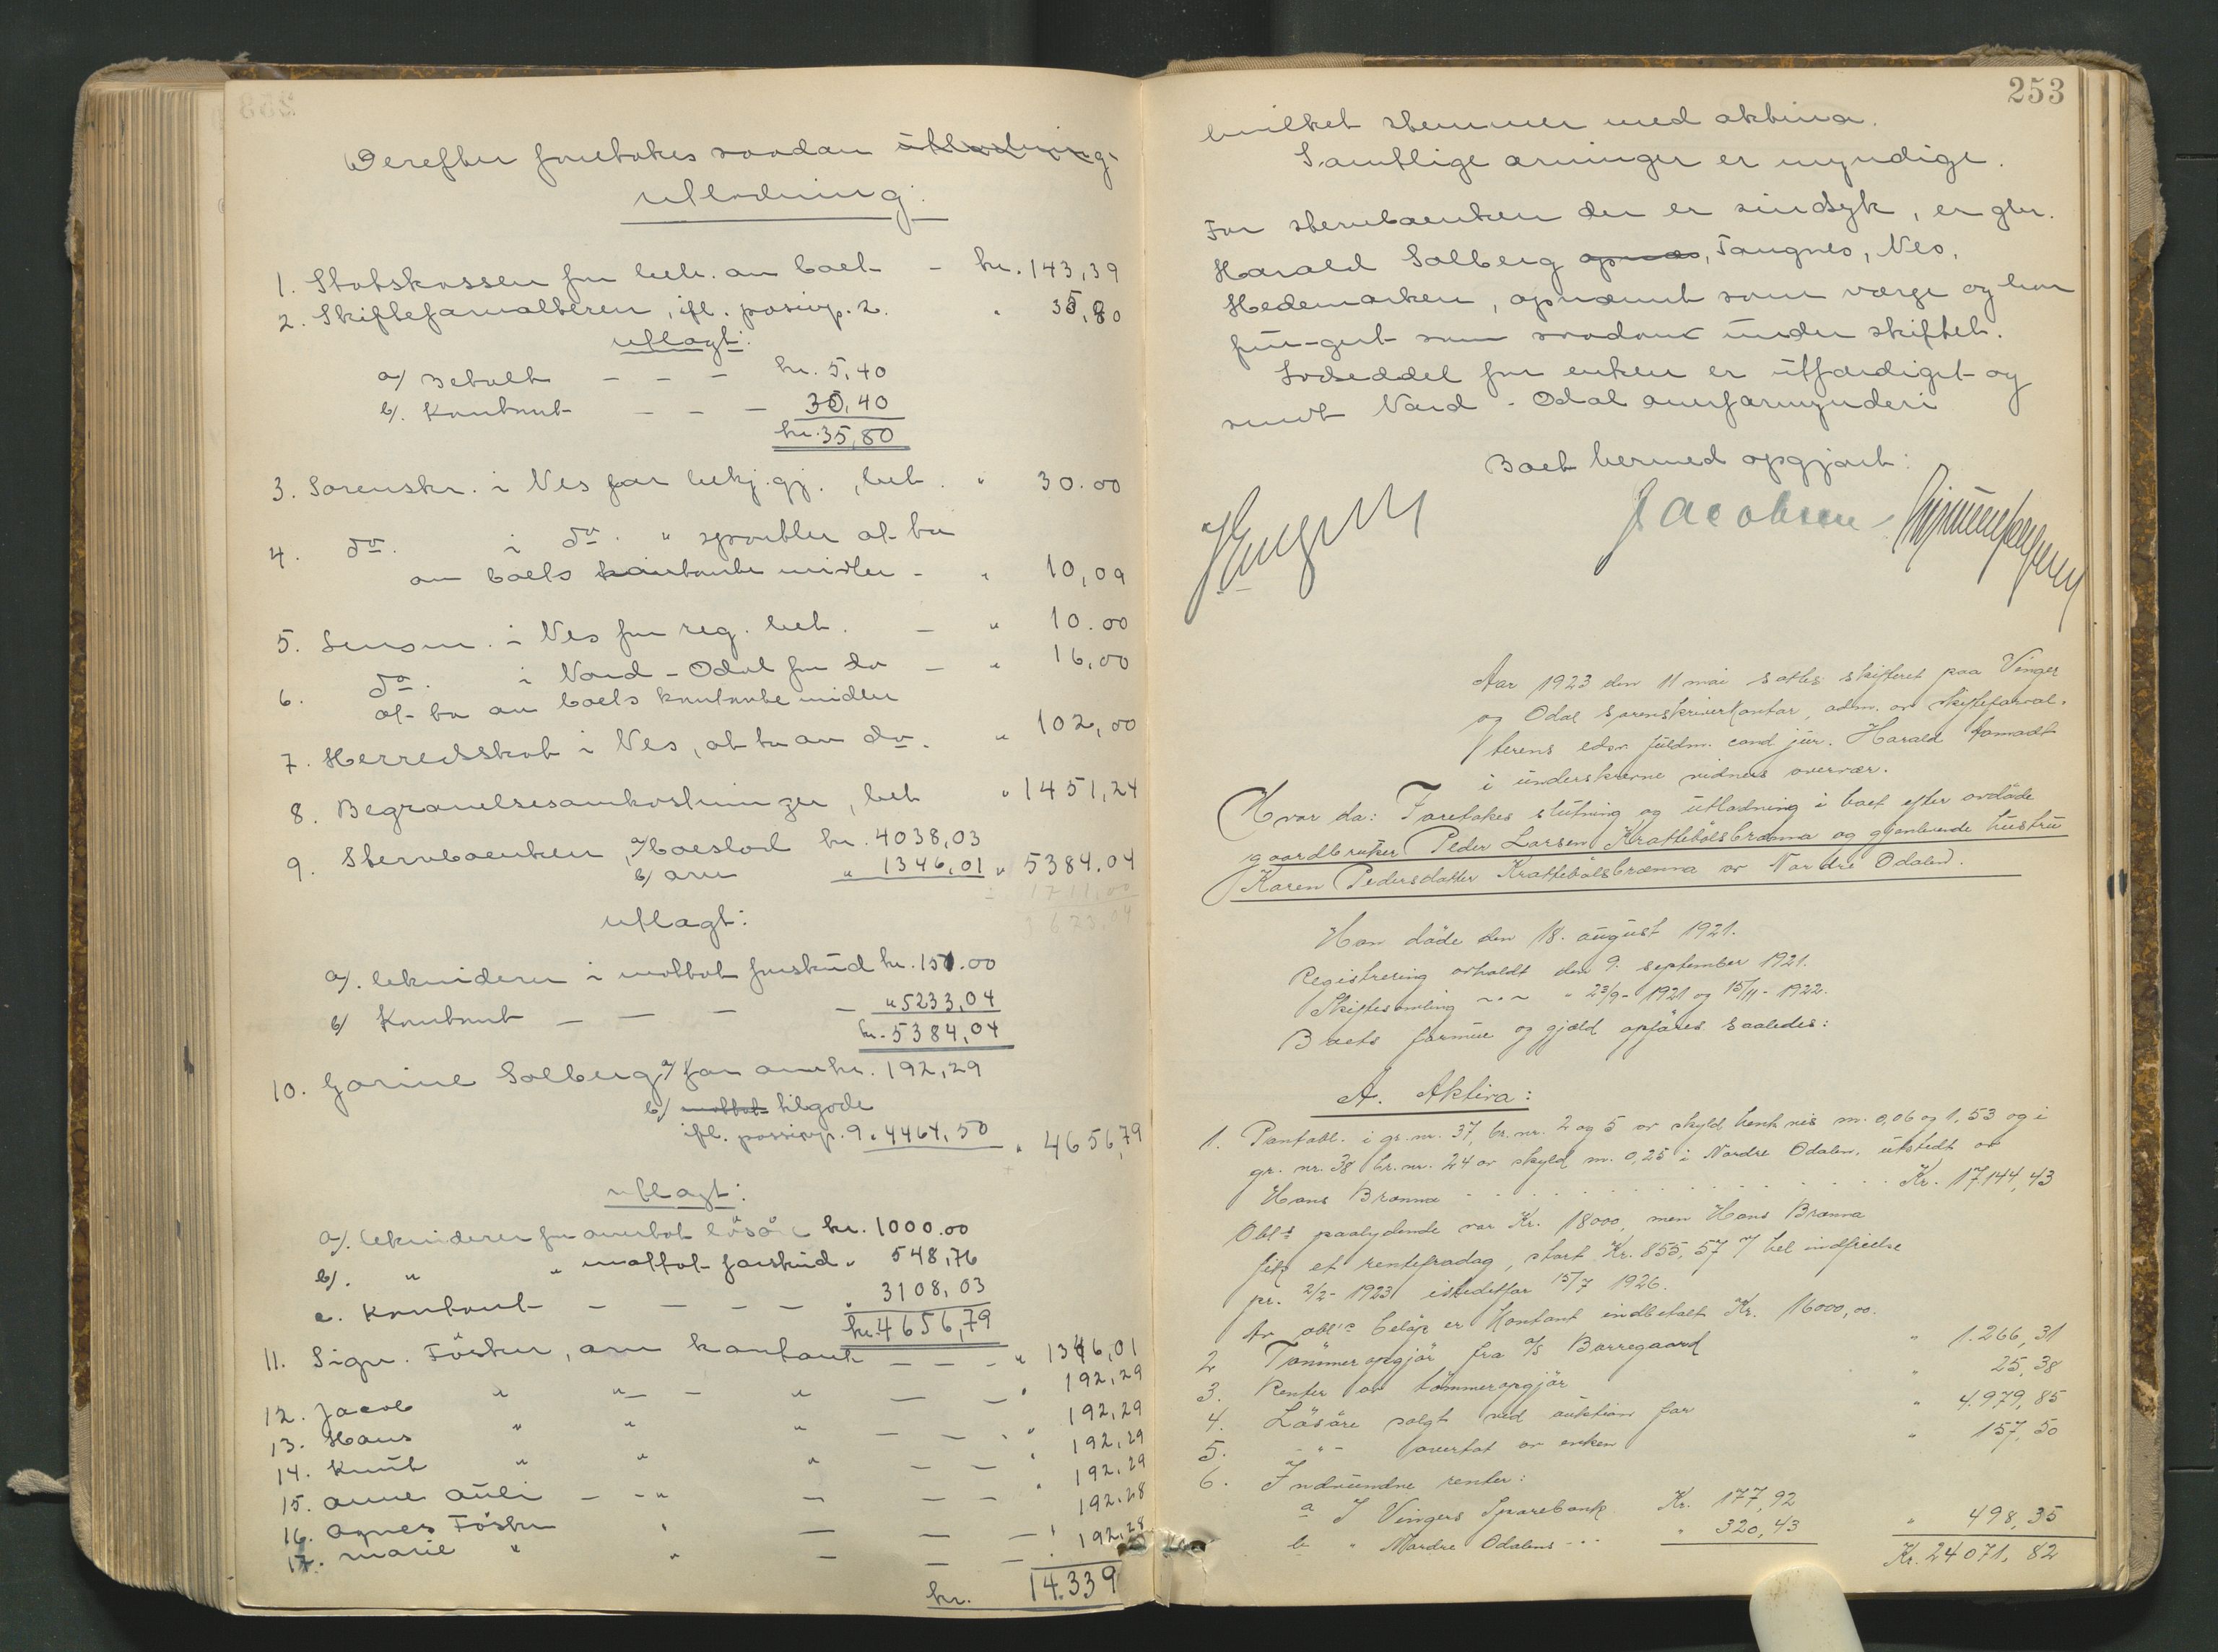 Derefter foretokes saadan utlodning
utlodning:
1. Statskassen for beh. av boet - kr. 143,39
2. Skifteforvalteren, ifl. passivp. 2. " 35,80
utlagt:
a/ Betalt - - - kr. 5,40
b/. Kontant - - - 30,40
kr. 35,80
3. Sorenskr. i Nes for bekj.gj., bet. " 30.00
4. do. i do. " sportler at ta
av boets kontante midler - " 10,09
5. Lensm. i Nes for reg. bet. - " 10.00
6. do. i Nord-Odal for do - " 16,00
at ta av boets kontante midler
7. Herredsskat i Nes, at ta av do. " 102,00
8. Begravelsesomkostninger, bet " 1451,24
9. Stervboenken, a/ boeslod kr. 4038,03
b/ arv " 1346,01 " 5384.04
1711,00
3623,04
utlagt:
a/. likviderer i mottat forskud kr. 151.00
b/ Kontant - - - - " 5233,04
kr. 5384,04
10. Gorine Solberg, a/ fars arv kr. 192,29
b/ mottat tilgode
ifl. passivp. 9 " 4464,50 " 4656,79
utlagt:
a/. likviderer for overtat løsøre kr. 1000.00
b/. " " mottat forskud " 548,76
c. Kontant - - - - " 3108,03
kr. 4656,79
11. Sign. Fösker, arv kontant - - - " 1346,01
12. Jacob " " - " - - " 192,29
13. Hans " " " - - " 192,29
14. Knut " " " - - " 192,29
15. Anne Auli - - " - - - " 192,29
16. Agnes Fösker " - - - " 192,28
17. Marie " " - - - " 192,28
kr. 14.339
253
hvilket stemmer med aktiva.
Samtlige arvinger er myndige.
For stervboenken der er sindsyk, er gbr.
Harald Solberg opnæv, Tangnes, Nes,
Hedemarken, opnævnt som værge og har
fun-gert som saadan under skiftet.
Lodseddel for enken er utfærdiget og
sendt Nord-Odal overformynderi
Boet hermed opgjort:
Jacobsen
Aar 1923 den 11 mai sattes skifteret paa Vinger
og Odal sorenskriverkontor, adm. av skifteforval-
terens edsv. fuldm. cand jur. Harald
i underskrevne vidners overvær.
Hvor da: Foretokes slutning og utlodning i boet efter avdøde
gaardbruker Peder Larsen Krattebølsbrænna og gjenlevende hustru
Karen Pedersdatter Krattebølsbrænna av Nordre Odalen.
Han døde den 18. august 1921.
Registrering avholdt den 9. september 1921.
Skiftesamling - " - " 23/9 - 1921 og 15/11 - 1922.
Boets formue og gjæld opføres saaledes:
A. Aktiva:
1. Pantobl. i gr. nr. 37, br. nr. 2 og 5 av skyld henh nvis m. 0,06 og 1,53 og i
gr. nr. 38 br. nr. 24 av skyld m. 0,25 i Nordre Odalen, utstedt av
Hans Brænna . . . . . . . . . . Kr. 17.144,43
Obl's paalydende var Kr. 18000, men Hans Brænna
fik et rentefradag, stort Kr. 855,57 v/ hel indfrielse
pr. 2/2 - 1923 istedetfor 15/7 1926.
Av obl's beløp er kontant indbetalt Kr. 16000,00.
2. Tømmeropgjør fra A/S Borregaard " 1.266,31
3. Renter av tømmeropgjør " 25,38
4. Løsøre solgt ved auktion for " 4.979,85
5. - " - overtat av enken " 157,50
6. Indvundne renter:
a I Vingers Sparebank Kr. 177,92
b " Nordre Odalens - . . " 320,43 " 498,35
Kr. 24071,82